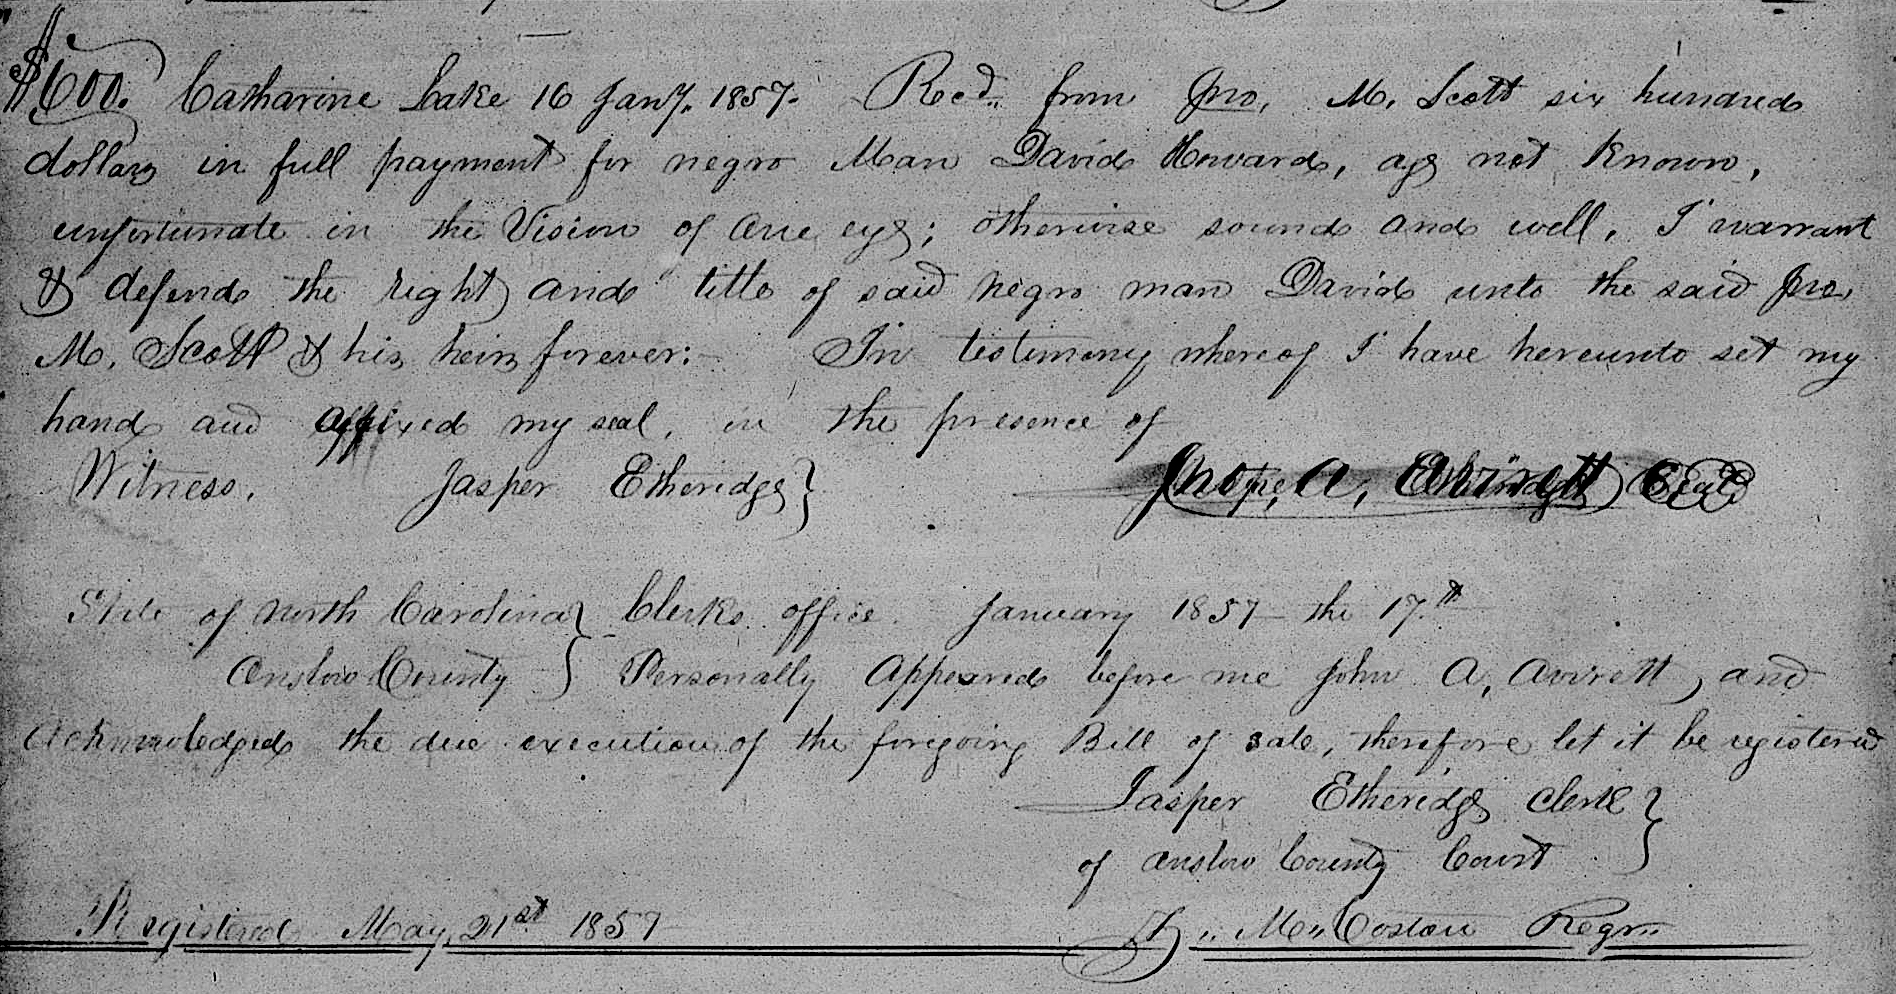 $600. Catharine Lake 16 Jany. 1857. Recd. from Jno. M. Scott six hundred
dollars in full payment for negro Man David Howard, age not known,
unfortunate in the Vision of one eye; otherwise sound and well, I warrant
& defend the right and title of said negro man David unto the said Jno.
M. Scott & his heirs forever:- In testimony whereof I have hereunto set my
hand and affixed my seal, in the presence of
Witness. Jasper Etheridge } Jno. A. Avirett Seal
State of North Carolina } Clerks office January 1857 the 17th
Onslow County } Personally Appeared before me John A. Avirett, and
acknowledged the due execution of the foregoing Bill of sale, therefore let it be registered
Jasper Etheridge Clerk }
of Onslow County Court
Registered May 21st 1857 M. Costan Regr.